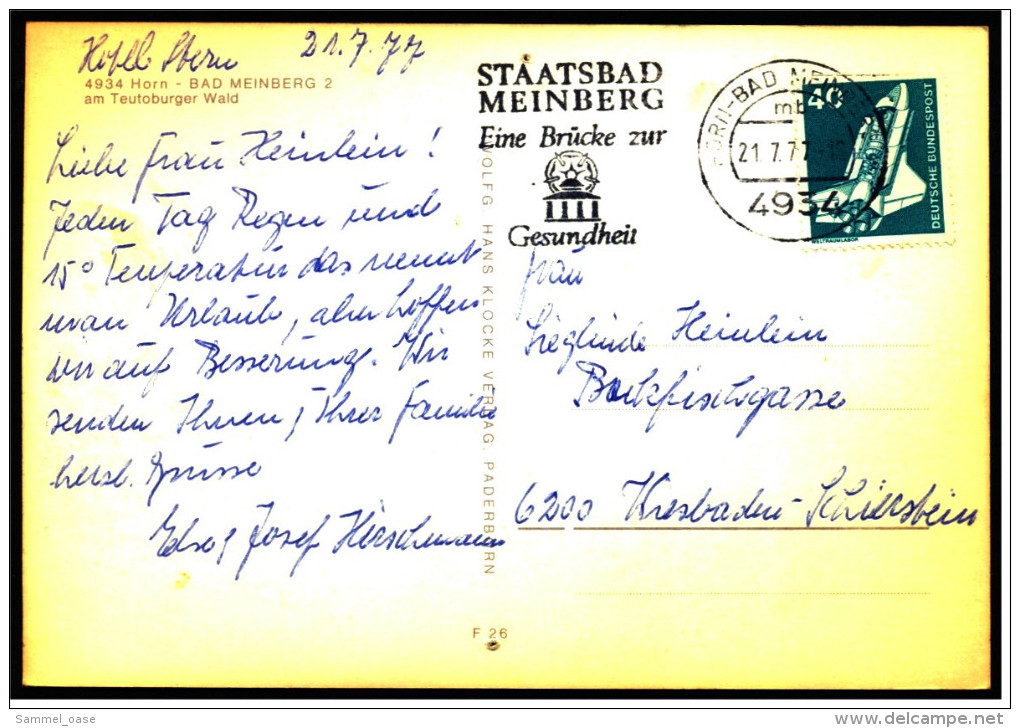 Hotel Stern 21.7.77
4934 Horn - BAD MEINBERG 2
am Teutoburger Wald
Liebe Frau Heinlein!
Jeden Tag Regen und
15° Temperatur das nennt
man Urlaub, aber hoffen
wir auf Besserung. Wir
senden Ihnen & Ihrer Familie
herzl. Grüsse
Else & Josef Hirschmann
WOLFG. HANS KLOCKE VERLAG, PADERBORN
F 26
STAATSBAD
MEINBERG
Eine Brücke zur
Gesundheit
HORN-BAD MEINBERG
mb
21.7.77
4934
40
DEUTSCHE BUNDESPOST
WELTRAUMLABOR
Frau
Sieglinde Heinlein
Backfischgasse
6200 Wiesbaden-Schierstein
Sammel_oase
delcampe.net